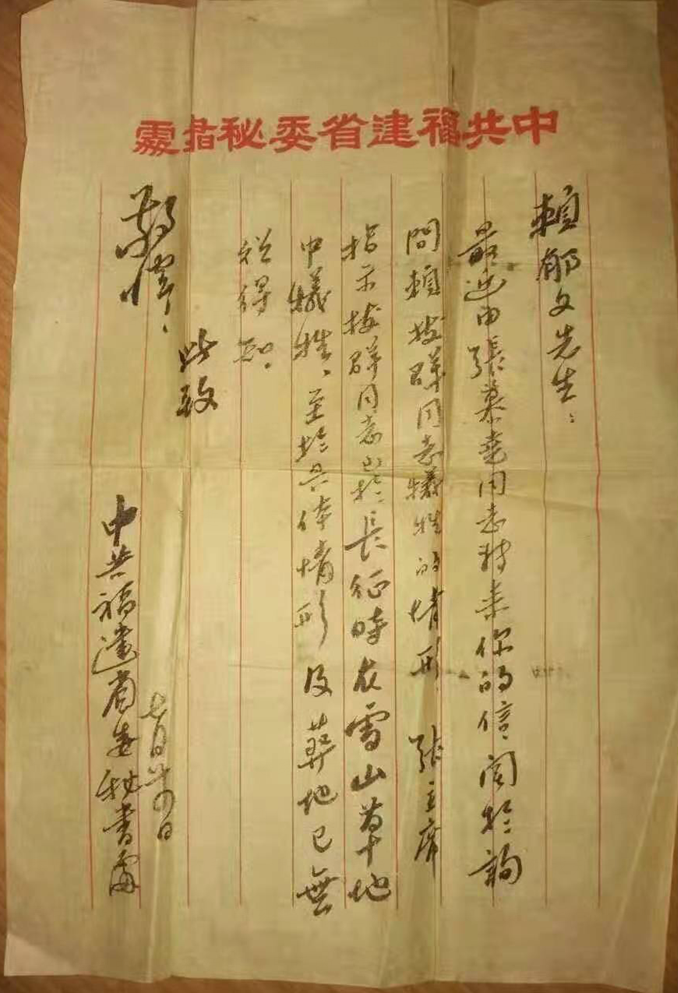 中共福建省委秘書處
賴郁文先生：
最近由張慕堯同志轉來你的信，関於詢
問賴拔群同志犧牲的情形，張主席
指示拔群同志已於長征時在雪山草地
中犧牲，至於具体情形及葬地已無
從得知。
此致
敬禮！
中共福建省委秘書處
七月廿四日